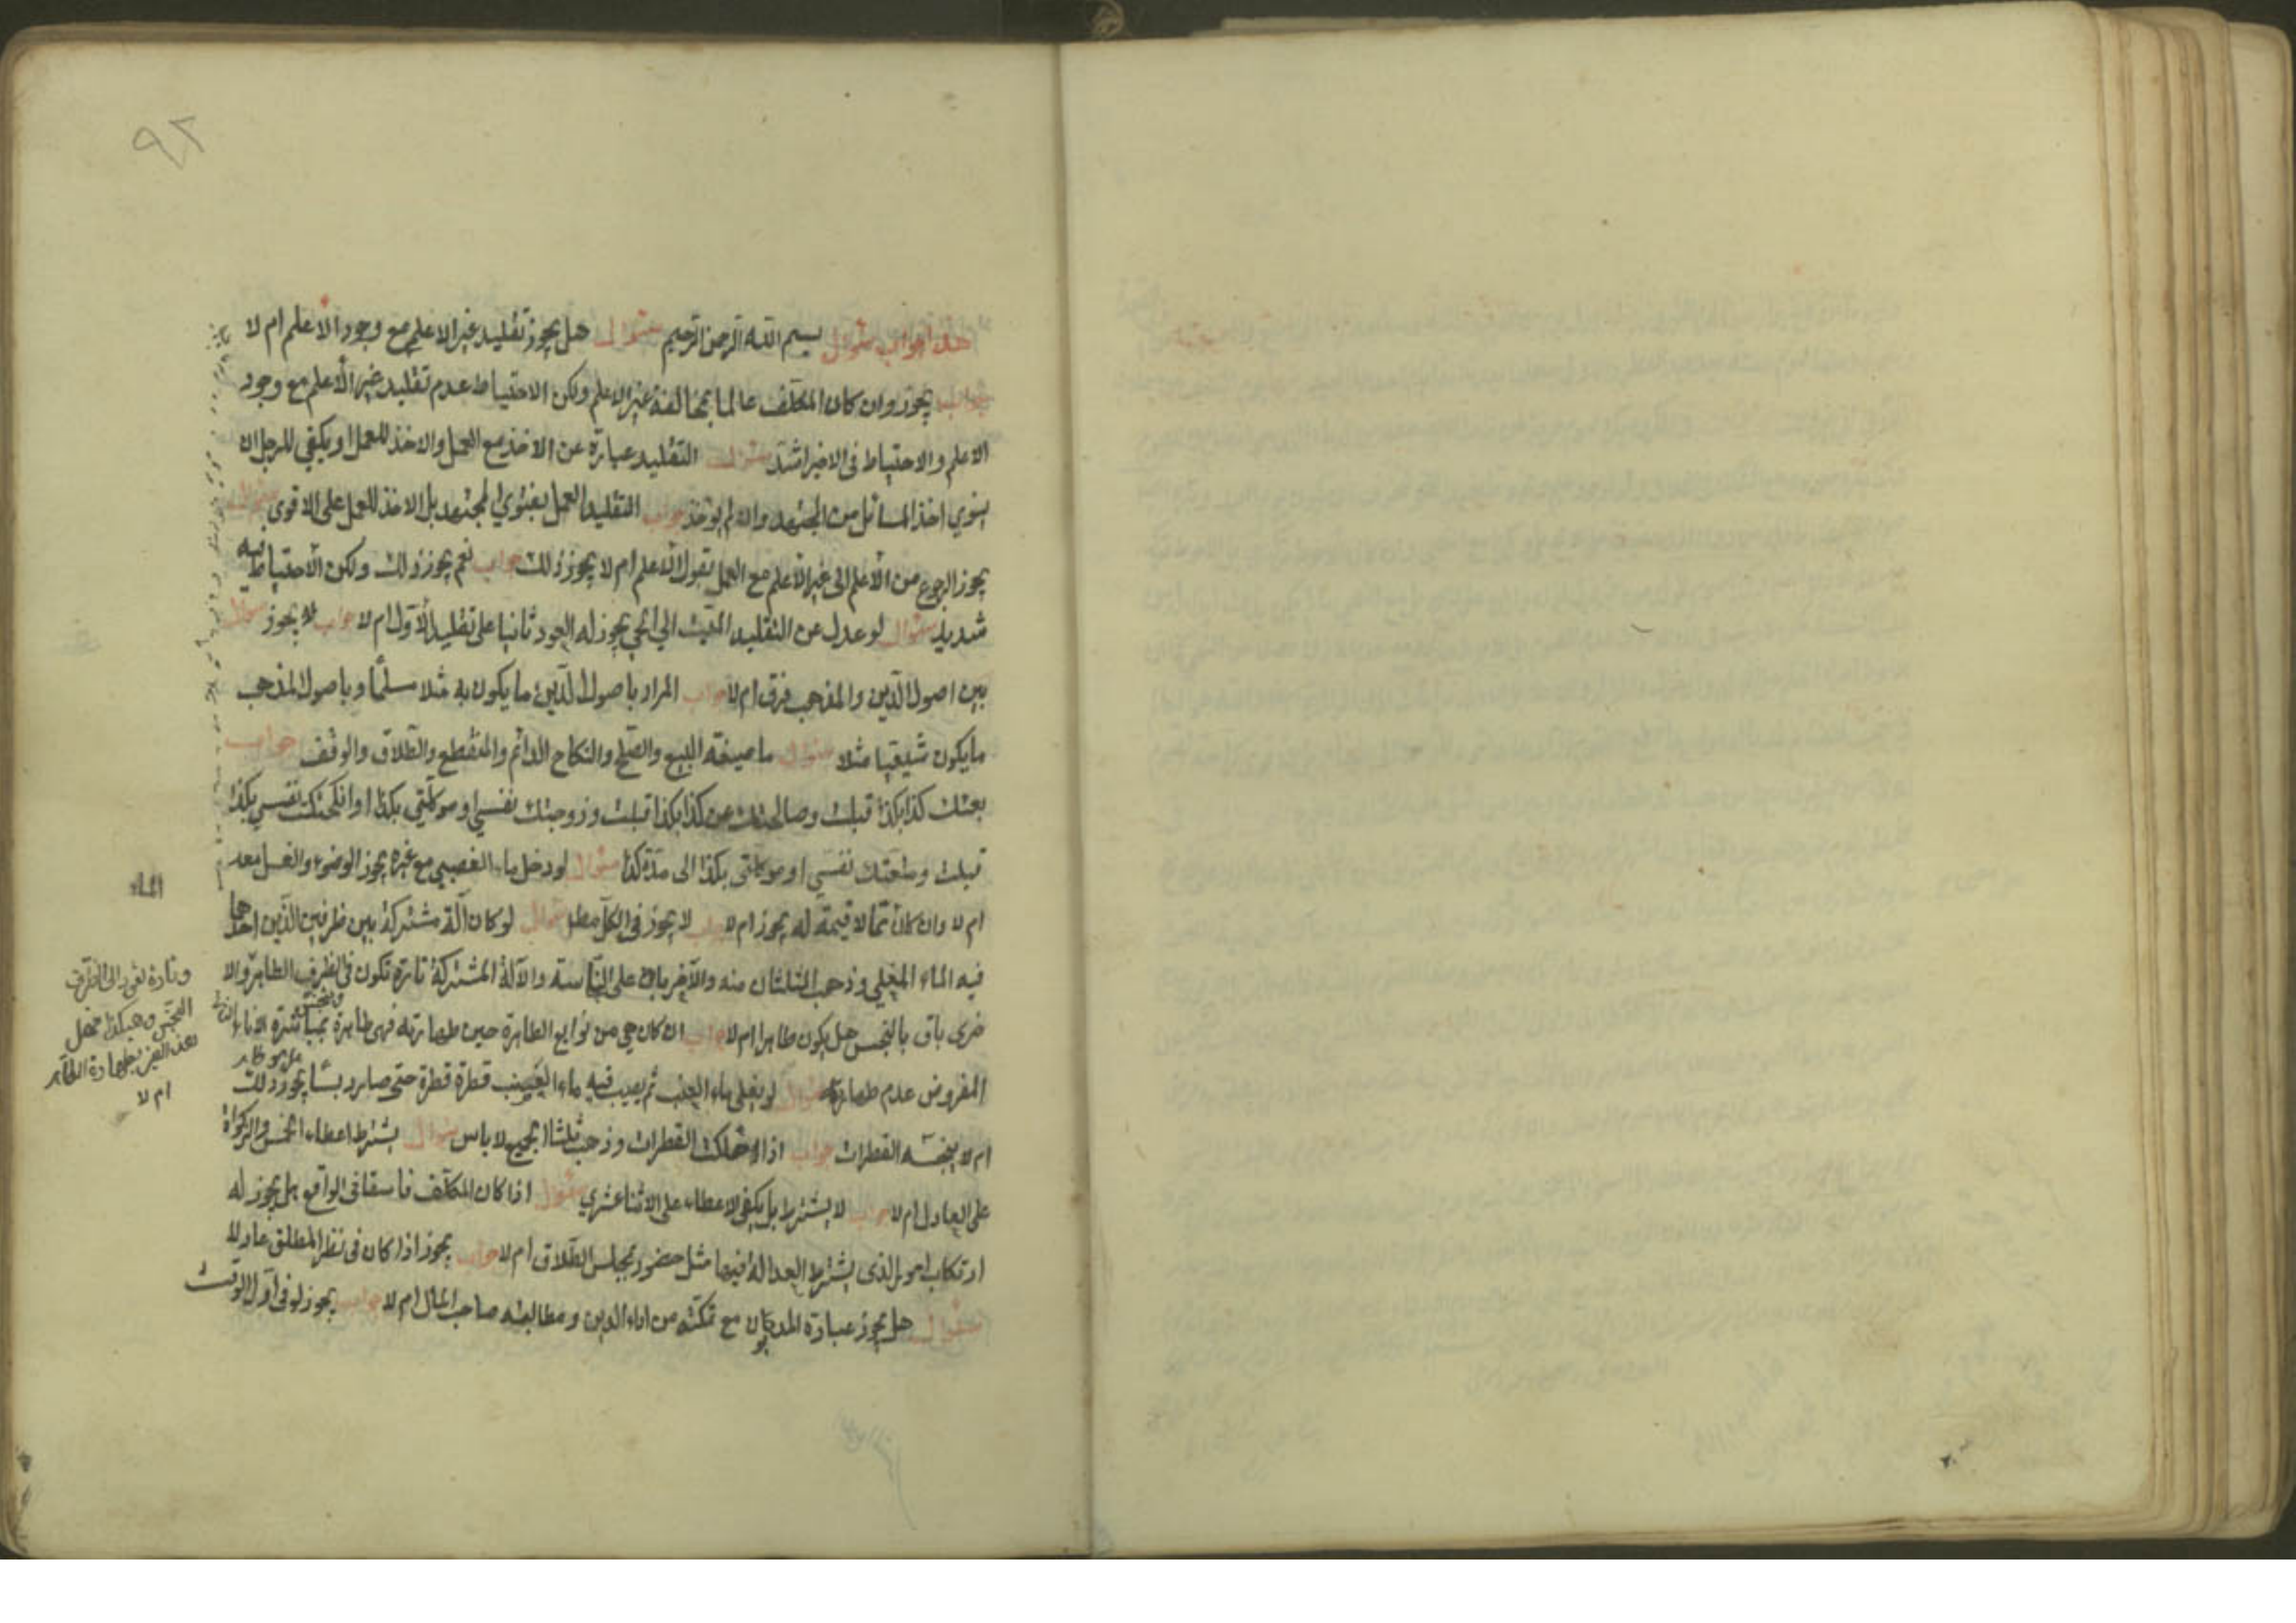 ٩٢
هذا جواب سؤال بسم الله الرحمن الرحيم سؤال هل يجوز تقليد غير الاعلم مع وجود الاعلم ام لا
جواب يجوز وان كان المكلف عالما بمخالفة غير الاعلم ولكن الاحتياط عدم تقليد غير الاعلم مع وجود
الاعلم والاحتياط فى الاخير اشد سؤال التقليد عبارة عن الاخذ مع العمل والاخذ للعمل او يكفي للرجل ان
ينوي اخذ المسائل من المجتهد وان لم يوخذ جواب التقليد العمل بفتوي المجتهد بل الاخذ للعمل على الاقوى سؤال
يجوز الرجوع من الاعلم الى غير الاعلم مع العمل بقول الاعلم ام لا يجوز ذلك جواب نعم يجوز ذلك ولكن الاحتياط فيه
شديد سؤال لو عدل عن التقليد الميت الى الحي يجوز له العود ثانيا على تقليد الاول ام لا جواب لا يجوز سؤال
بين اصول الدين والمذهب فرق ام لا جواب المراد باصول الدين ما يكون به مثلا مسلما وباصول المذهب
ما يكون شيعيا مثلا سؤال ما صيغة البيع والصلح والنكاح الدائم والمنقطع والطلاق والوقف جواب
بعتك كذا بكذا قبلت وصالحتك عن كذا بكذا قبلت وزوجتك نفسي او موكلتي بكذا او انكحتك نفسي بكذا
قبلت ومتعتك نفسي او موكلتى بكذا الى مدة كذا سؤال لو دخل ماء الغصبي مع غيره يجوز الوضوء والغسل معه
ام لا وان كان مما لا قيمة له يجوز ام لا جواب لا يجوز فى الكل مطلقا سؤال لو كان آلة مشتركة بين ظرفين الذين احدهما
فيه الماء المغلي وذهب الثلثان منه والآخر باق على النجاسة والآلة المشتركة تارة تكون فى الظرف الطاهر والا
خرى باق بالنجس هل يكون طاهرا ام لا جواب ان كان هي من توابع الطاهرة حين طهارته فهى طاهرة وينجس بمباشرة الاناء
المفروض عدم طهارته سؤال لو يغلى ماء العنب ثم يصب فيه ماء العنب قطرة قطرة حتى صار دبسا يجوز ذلك
ام لا ينجسه القطرات جواب اذا القطرات وذهب ثلثا الجميع لا باس سؤال يشترط اعطاء الخمس والزكواة
على العادل ام لا جواب لا يشترط بل يكفى الاعطاء على الاثنا عشري سؤال اذا كان المكلف فاسقا فى الواقع هل يجوز له
ارتكاب امور الذى يشترط العدالة فيها مثل حضور مجلس الطلاق ام لا جواب يجوز اذا كان فى نظر المطلق عادلا
سؤال هل يجوز عبادة المديون مع تمكنه من اداء الدين ومطالبته صاحب المال ام لا جواب يجوز لو فى آخر الوقت
الماء
وتارة تقع الى الظرف
النجس وهكذا فهل
بطهارة الظاهر
ام لا